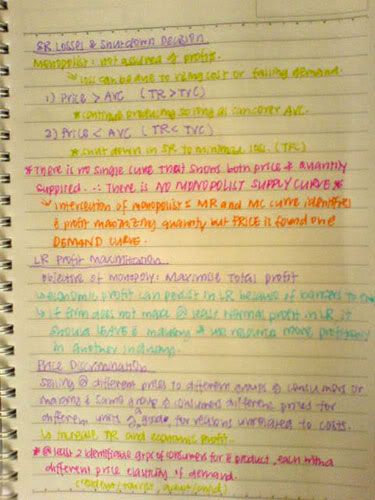 SR Losses & Shutdown Decision
Monopolist: not assured of profit.
↳ loss can be due to rising cost or falling demand.
1) Price > AVC (TR > TVC)
* continue producing so long as can cover AVC.
2) Price < AVC (TR < TVC)
* shut down in SR to minimize loss. (TFC)
* There is no single curve that shows both price & quantity
supplied. ∴ There is NO MONOPOLIST SUPPLY CURVE *
↳ intersection of monopolist's MR and MC curve identifies
profit maximizing quantity but PRICE is found on
DEMAND CURVE.
LR Profit Maximization
Objective of monopoly: Maximise total profit
↳ economic profit can persist in LR because of barriers to
↳ if firm does not make @ least normal profit in LR, it
should LEAVE industry & use resources more profitably
in another industry.
Price Discrimination
Selling @ different prices to different groups of consumers or
same group of consumers different prices for
different units of a good, for reasons unrelated to costs.
↳ increase TR and economic profit.
* @ least 2 identifiable grps of consumers for product, each with a
different price elasticity of demand.
(student/tourist, adult/child)